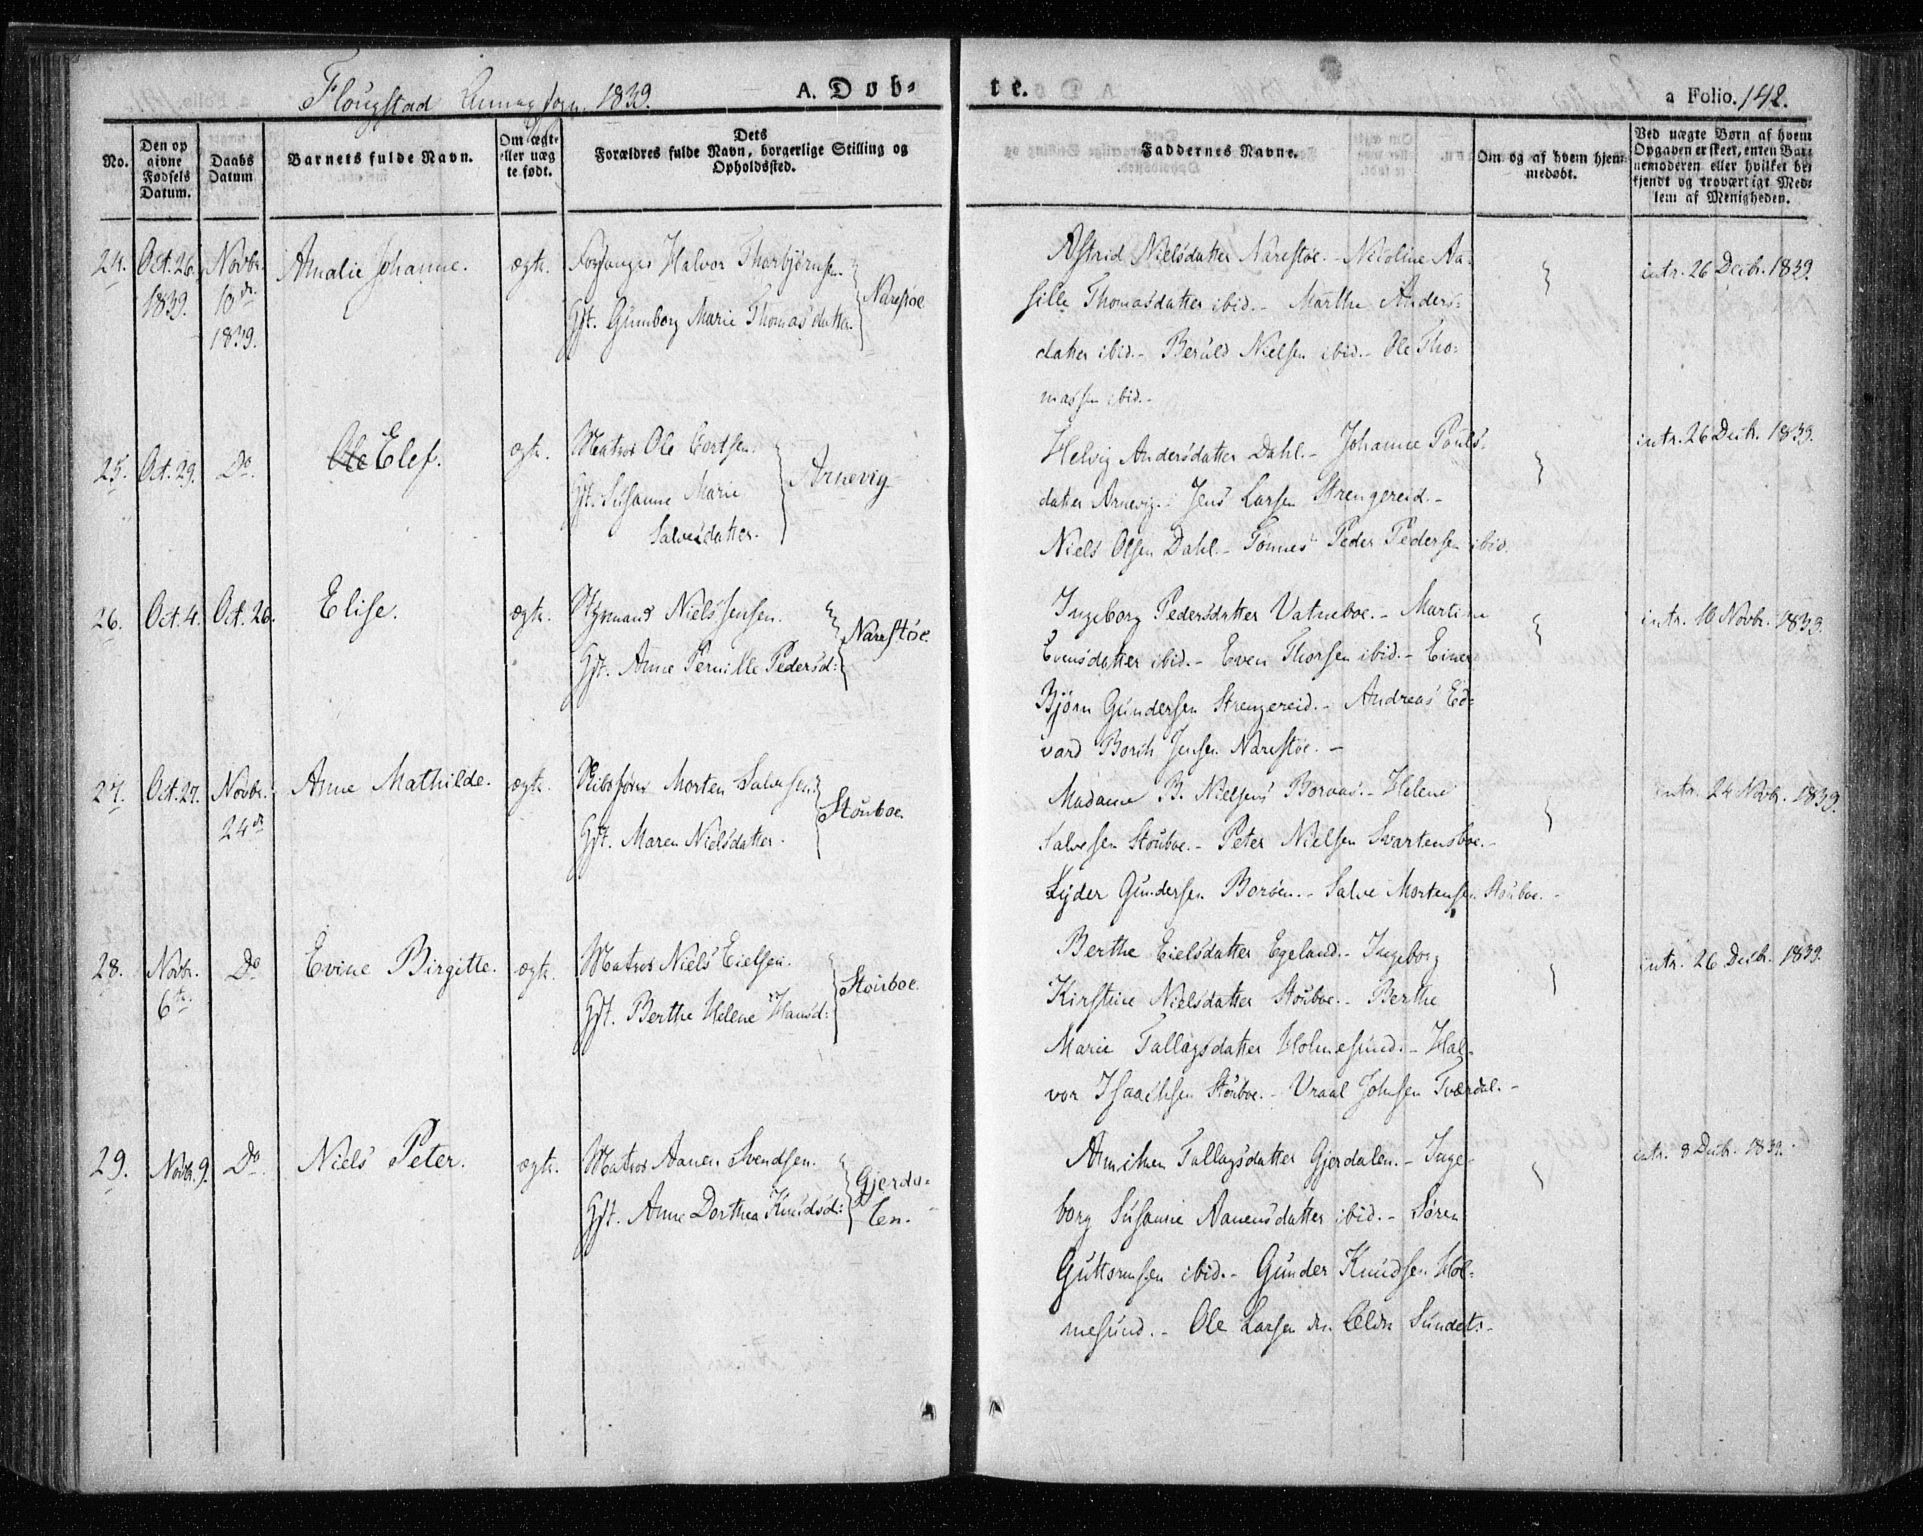 Flougstad Annexsogn 1839.
A. Døb-
te.
a Folio. 142.
No.
Den op
givne
Fødsels
Datum.
Daabs
Datum
Barnets fulde Navn.
Om ægte
eller uæg
te født.
Dets
Forældres fulde Navn, borgerlige Stilling og
Opholdssted.
Faddernes Navne.
Om og af hvem hjem-
medøbt.
Ved uægte Børn af hvem
Opgaven er skeet, enten Bar-
nemoderen eller hvilket be-
kjendt og troværdigt Med-
lem af Menigheden.
24. Oct. 26. 1839. Novbr. 10de 1839. Amalie Johanne. ægte. Halvor Thorbjørnsen
Hst. Gunborg Marie Thomasdatter. Narestøe
Astrid Nielsdatter Narestøe. - Nicoline Aa-
sille Thomasdatter ibid. - Marthe Anders-
datter ibid. - Beruld Nielsen ibid. - Ole Tho-
massen ibid. -
intr. 26 Decbr. 1839.
25. Oct. 29. Do. Ole Elef. ægte. Matros Ole
Hst. Susanne Marie
Salvesdatter. Arnevig
Helvig Andersdatter Dahl. - Johanne Pouls-
datter Arnevig. - Jens Larsen Strengereid. -
Niels Olsen Dahl. - Tønnes Peder Pedersen ibid.
intr. 26 Decbr. 1839.
26. Oct. 4. Oct. 20. Elise. ægte. Styrmand Niels Jensen.
Hst. Anne Pernille Pedersd: Narestøe.
Ingeborg Pedersdatter Vatneboe. - Martine
Evensdatter ibid. - Even Thorsen ibid. - Einer
Bjørn Gundersen Strengereid. - Andreas Ed-
vard Borch Jensen Narestøe. -
intr. 10 Novbr. 1839.
27. Oct. 27. Novbr. 24de Anne Mathilde. ægte. Skibsfører Morten Salvesen.
Hst. Maren Nielsdatter. Stouboe.
Madame B. Nielsens Boraas. - Helene
Salvesen Stouboe. - Peter Nielsen Svartensboe. -
Lyder Gundersen Borøen. - Salve Mortensen Stouboe. -
intr. 24 Novbr. 1839.
28. Novbr. 6te. Do Evine Birgitte. ægte. Matros Niels Eielsen.
Hst. Berthe Helene Hansd: Stouboe
Berthe Eielsdatter Egeland. - Ingeborg
Kirstine Nielsdatter Stouboe. - Berthe
Marie Tallagsdatter Holmesund. - Hal-
vor Isaachsen Stouboe. - Vraal Johnsen Tværdal. -
intr. 26 Decbr. 1839.
29. Novbr. 9. Do. Niels Peter. ægte. Matros Aanen Svendsen.
Hst. Anne Dorthea Knudsd: Gjerda-
len.
Annichen Tallagsdatter Gjerdalen. - Inge-
borg Susanne Aanensdatter ibid. - Søren
Guttormsen ibid. - Gunder Knudsen Hol-
mesund. - Ole Larsen den Ældre Sundets -
intr. 8 Decbr. 1839.